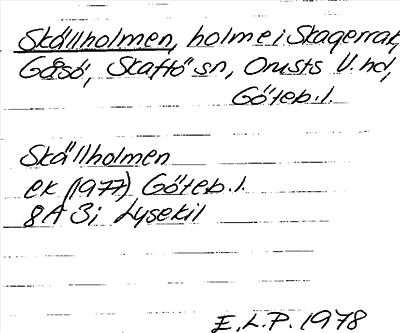 Skällholmen, holme i Skagerrak,
Gåsö, Skaftö sn, Orusts V. hd,
Göteb. l.
Skällholmen
ek (1977) Göteb. l.
8A 3i Lysekil
E.L.P. 1978